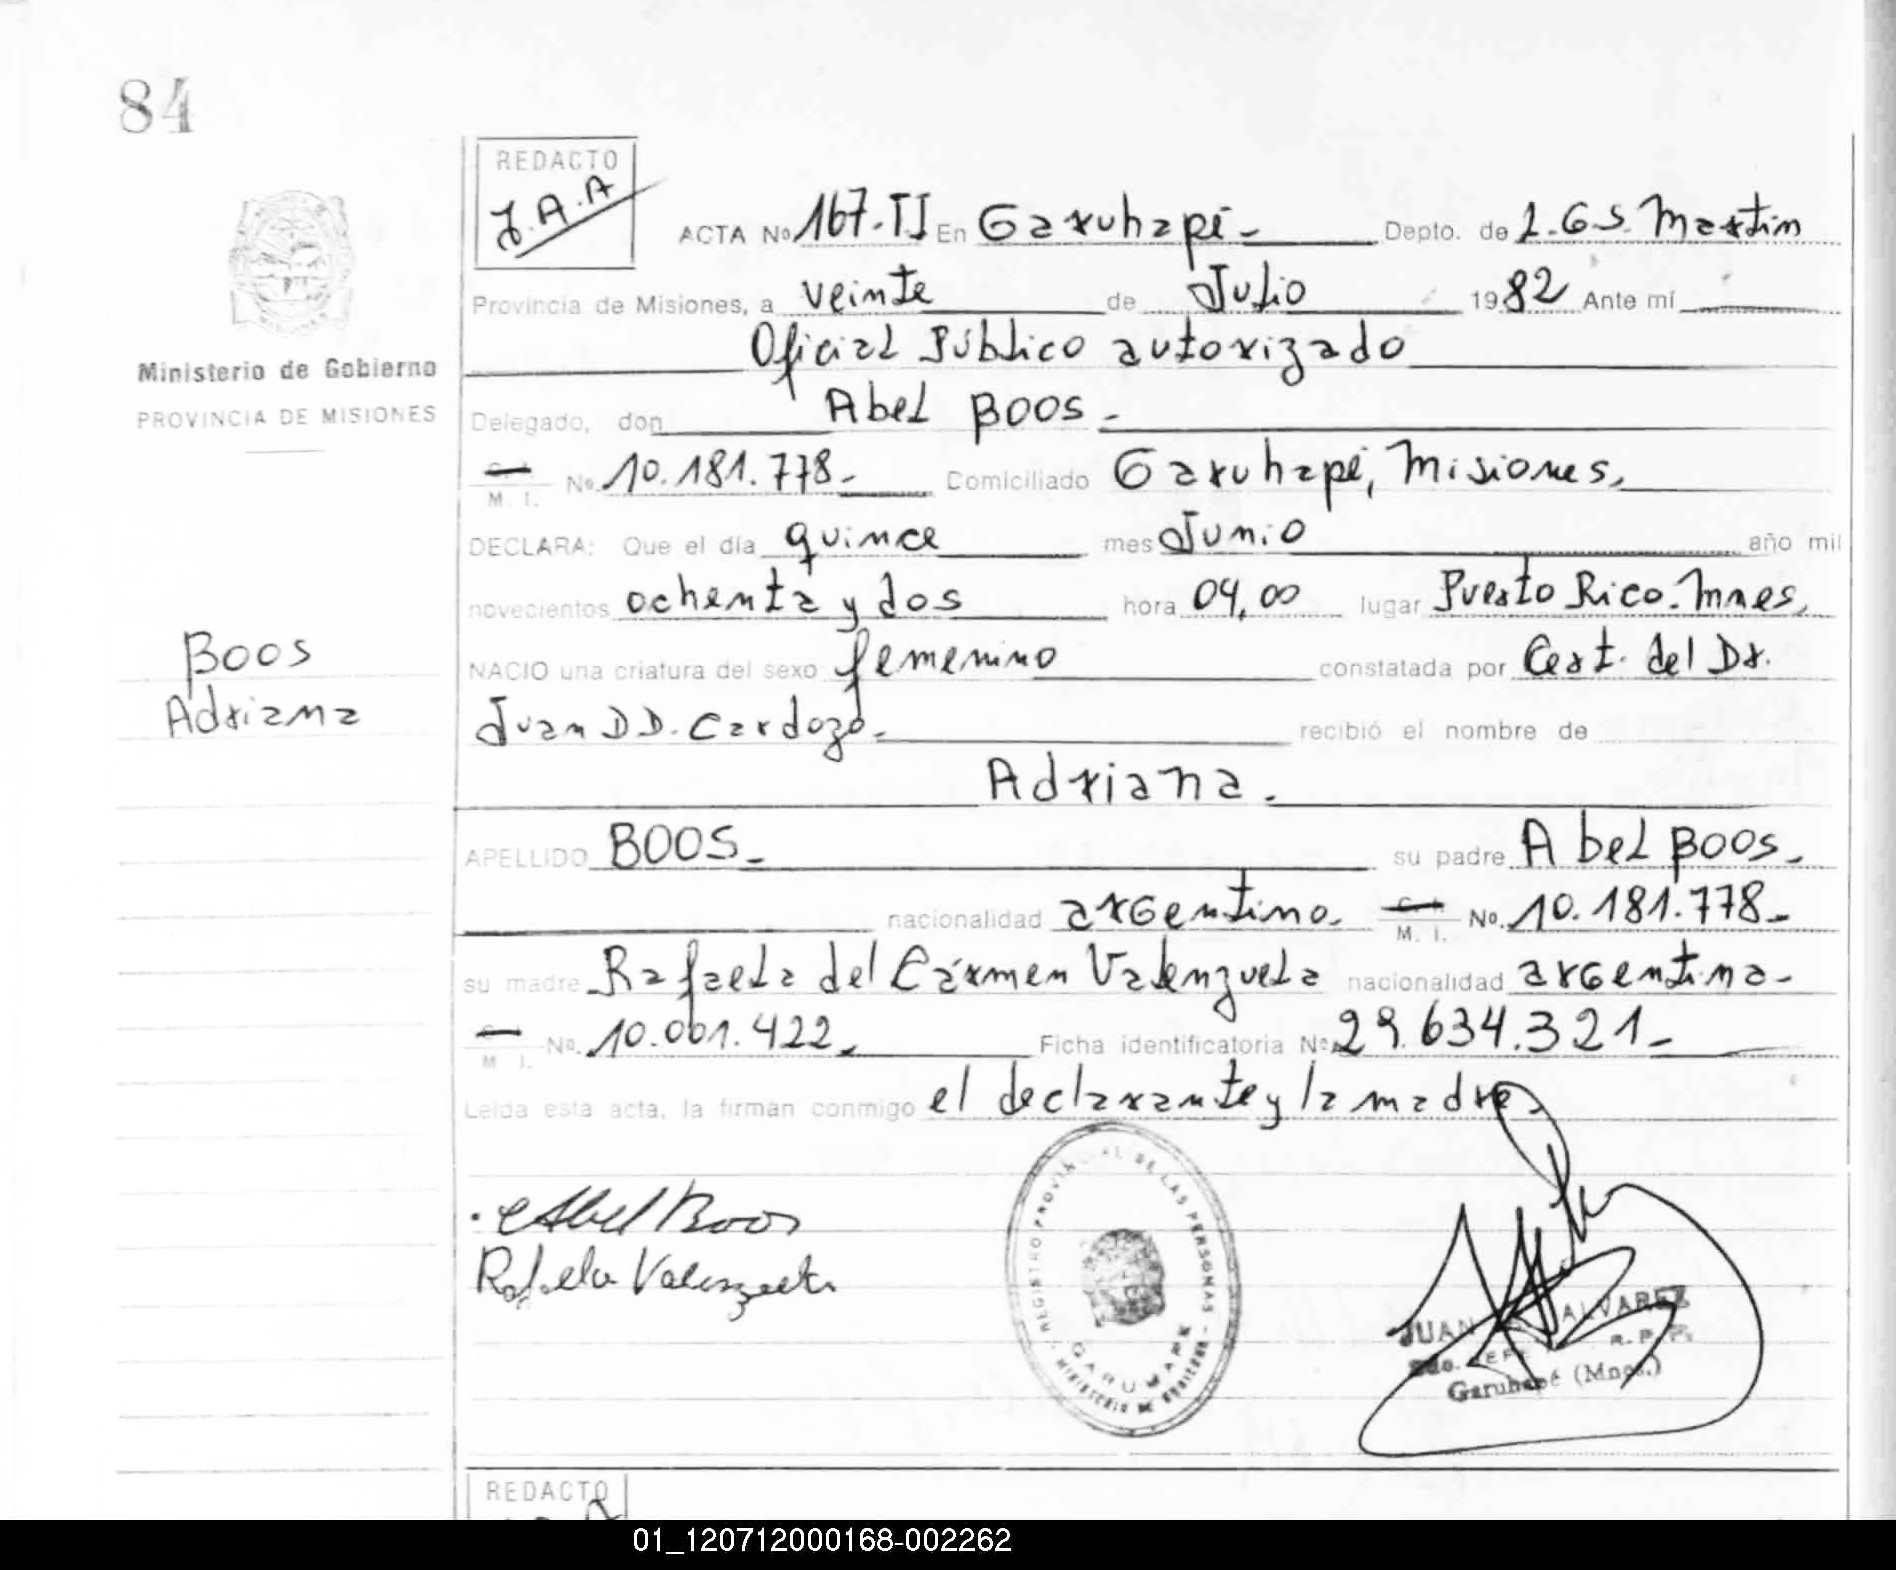 84
REDACTO
J.A.A
ACTA No 167.II En Garuhapé - Depto. de L.G.S. Martín
Provincia de Misiones, a veinte de Julio 1982 Ante mí
Oficial Público autorizado
Ministerio de Gobierno
PROVINCIA DE MISIONES
Delegado, don Abel Boos -
M. I. No. 10.181.778.- Comiciliado Garuhapé, Misiones,
DECLARA: Que el día quince mes Junio año mil
novecientos ochenta y dos hora 04,00 lugar Puerto Rico. Mnes,
Boos
Adriana
NACIO una criatura del sexo femenino constatada por Cert. del Dr.
Juan D D. Cardozo.- recibió el nombre de
Adriana.
APELLIDO BOOS - su padre Abel Boos -
nacionalidad argentino. M. I. No. 10.181.778 -
su madre Rafaela del Cármen Valenzuela nacionalidad argentina -
M I. No. 10.001.422 - Ficha identificatoria No 29.634.321 -
Leída esta acta, la firman conmigo el declarante y la madre
Abel Boos
Rafaela Valenzuela
REGISTRO PROVINCIAL DE LAS PERSONAS
GARUHAPE
MINISTERIO DE GOBIERNO
JUAN ALVAREZ
R. P. P.
Garuhapé (Mnes.)
REDACTO
01_120712000168-002262